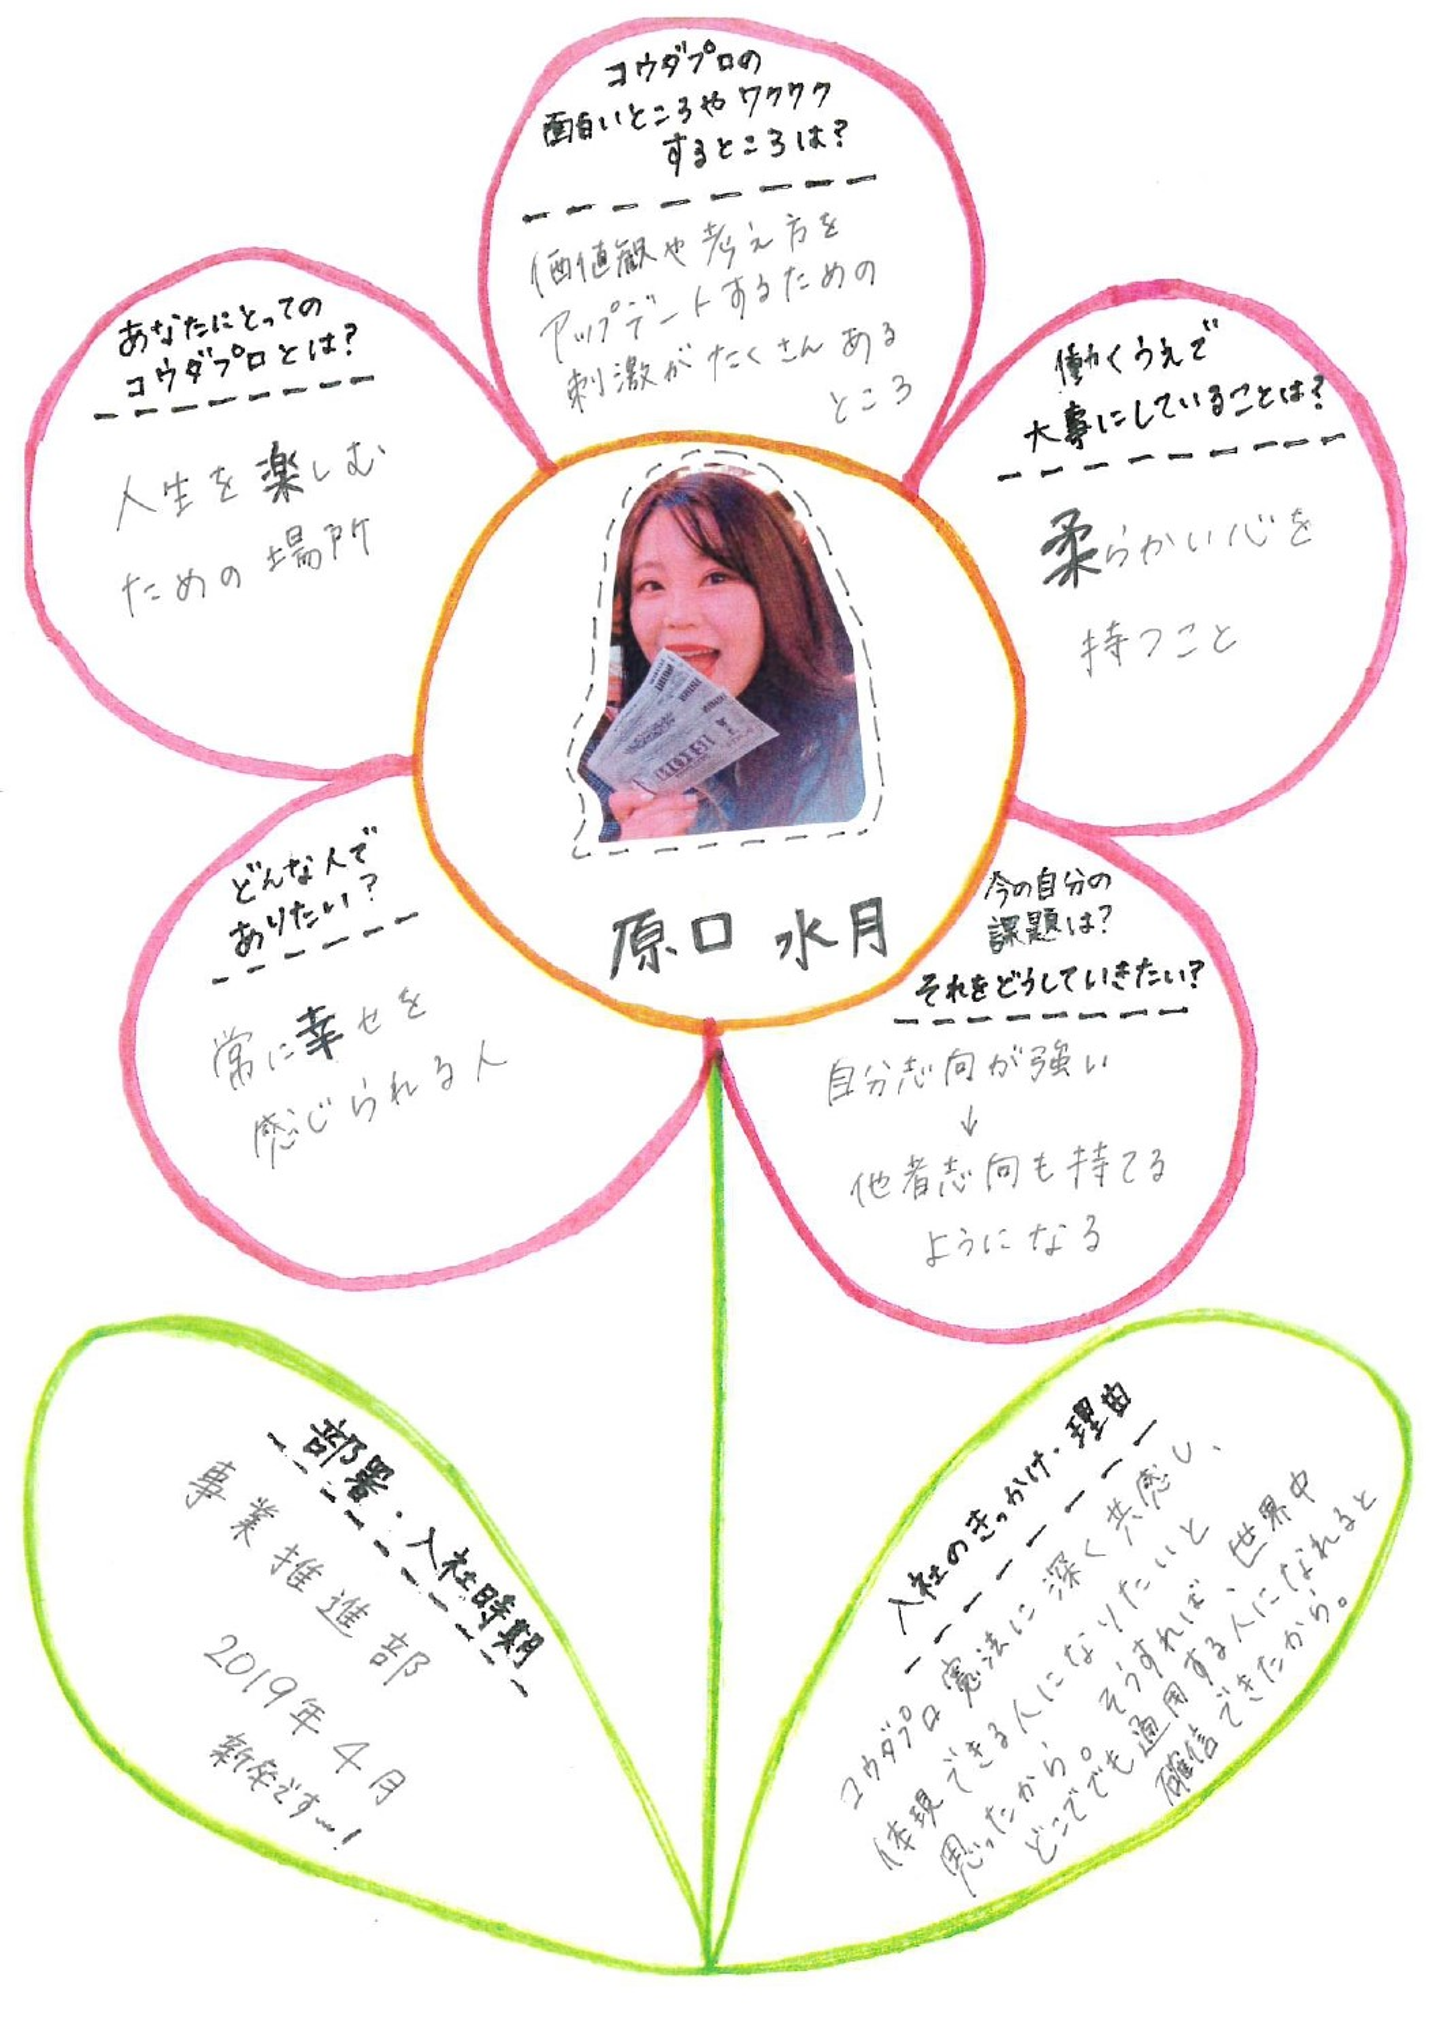 コウダプロの
面白いところやワクワク
するところは?
価値観や考え方を
アップデートするための
刺激がたくさんある
ところ
あなたにとっての
コウダプロとは?
人生を楽しむ
ための場所
働くうえで
大事にしていることは?
柔らかい心を
持つこと
原口 水月
どんな人で
ありたい?
常に幸せを
感じられる人
今の自分の
課題は?
それをどうしていきたい?
自分志向が強い
↓
他者志向も持てる
ようになる
部署・入社時期
事業推進部
2019年4月
新卒です〜!
入社のきっかけ・理由
コウダプロ憲法に深く共感し、
体現できる人になりたいと
思ったから。そうすれば、世界中
どこででも通用する人になれると
確信できたから。